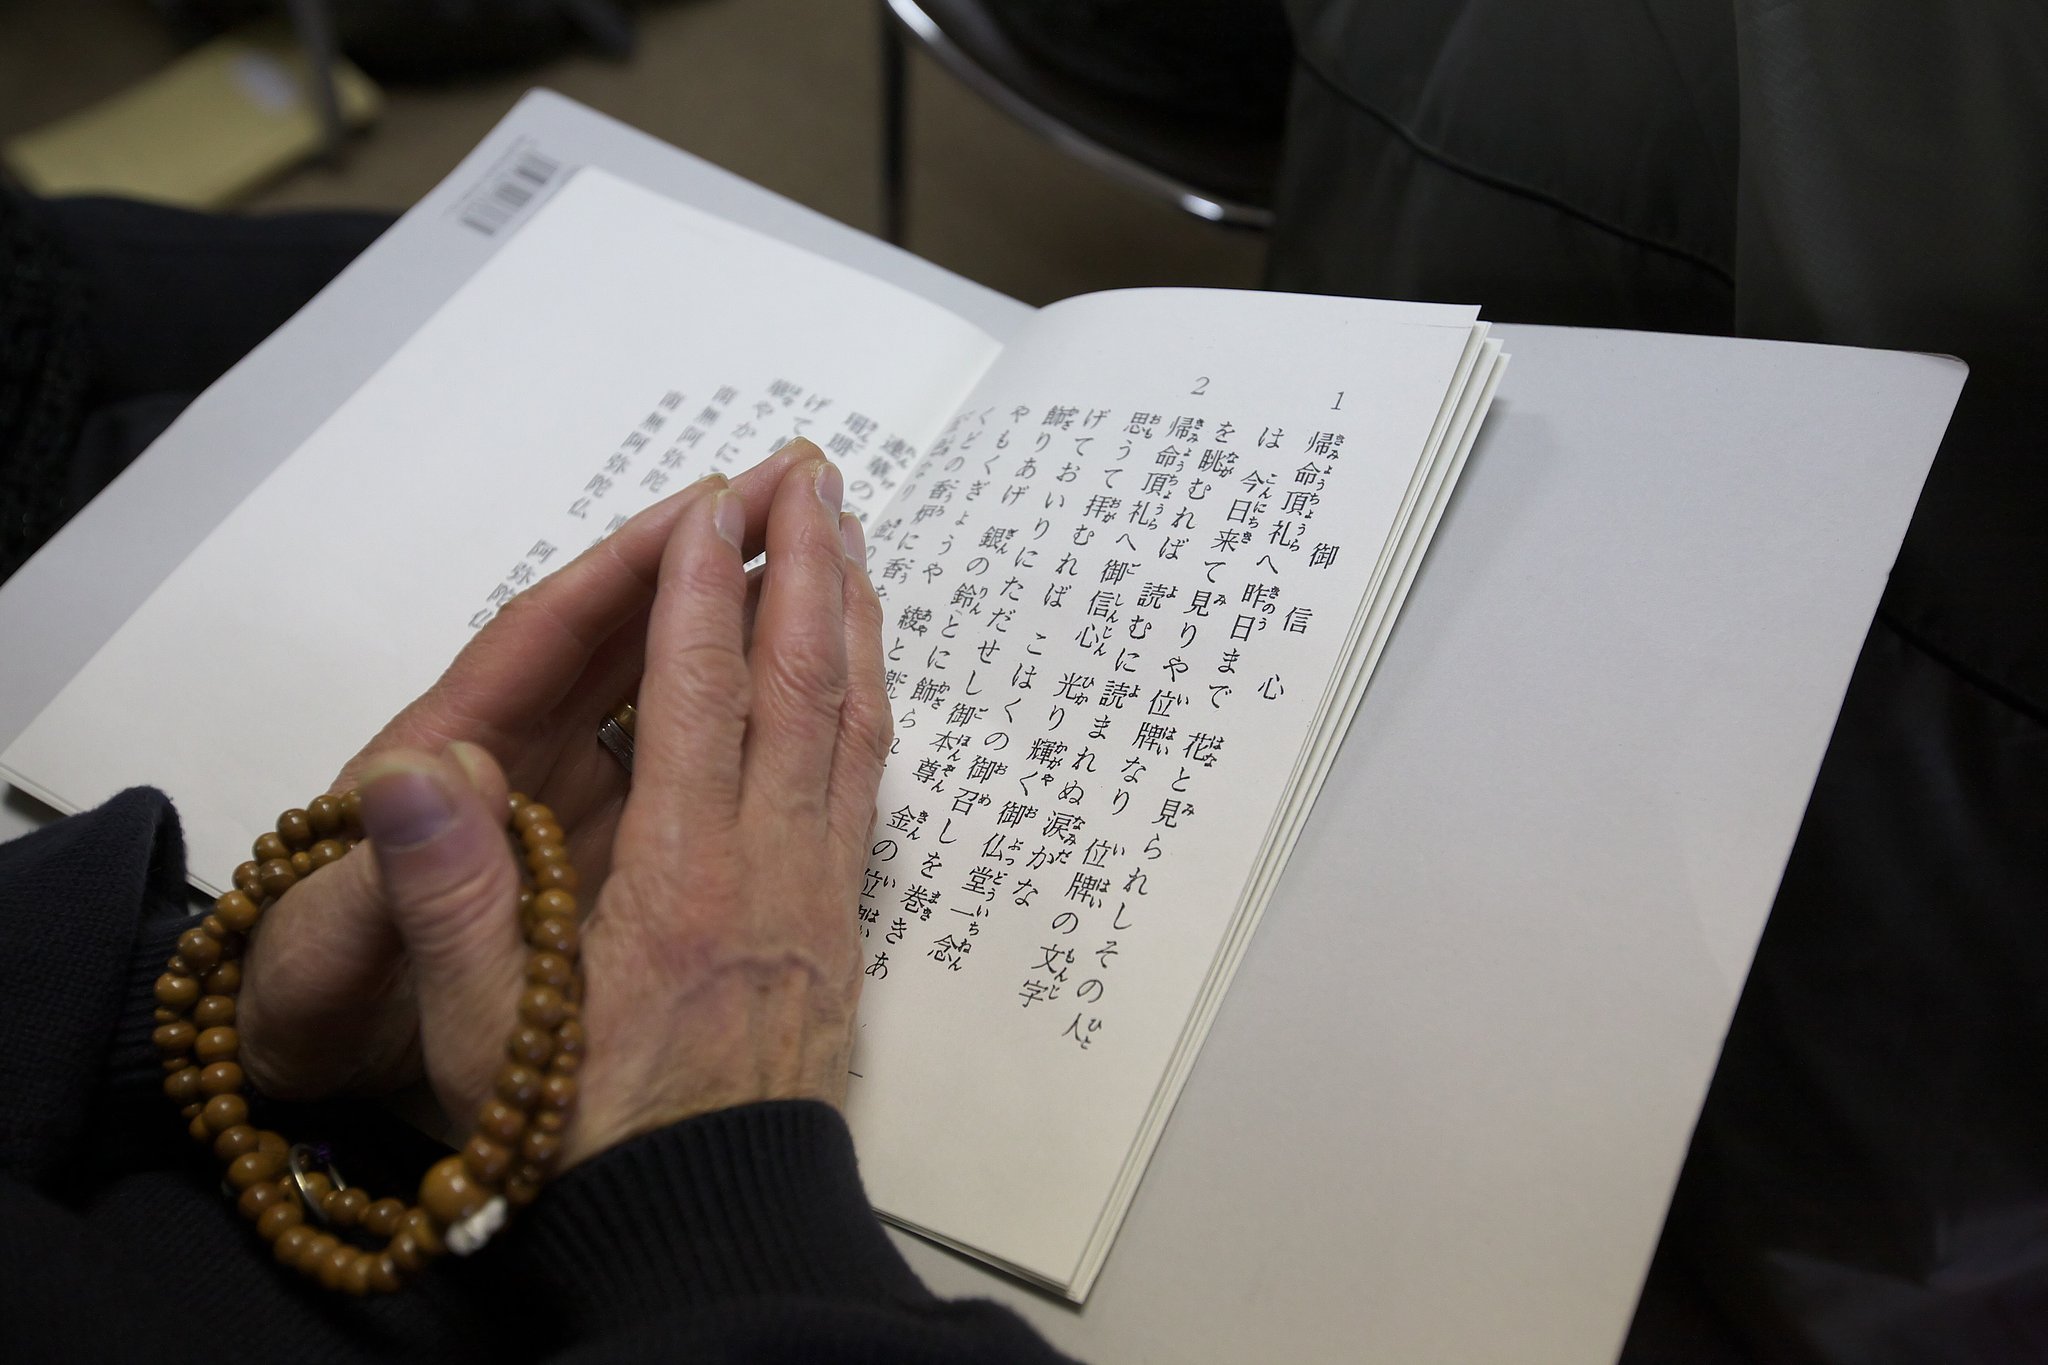 御信心
1 帰命頂礼へ昨日まで 花と見られしその人
は 今日来て見りや位牌なり 位牌の文字
を眺むれば 読むに読まれぬ涙かな
2 帰命頂礼へ御信心 光り輝く御仏堂一念
思うて拝むれば こはくの御召しを巻きあ
げておいりにただせし御本尊 金の位牌
飾りあげ 銀の鈴とに飾
やもくぎょうや 綾と
くどの香炉に香
蓮華の
げて
やかに
南無阿弥陀
南無阿弥陀仏 阿弥陀仏